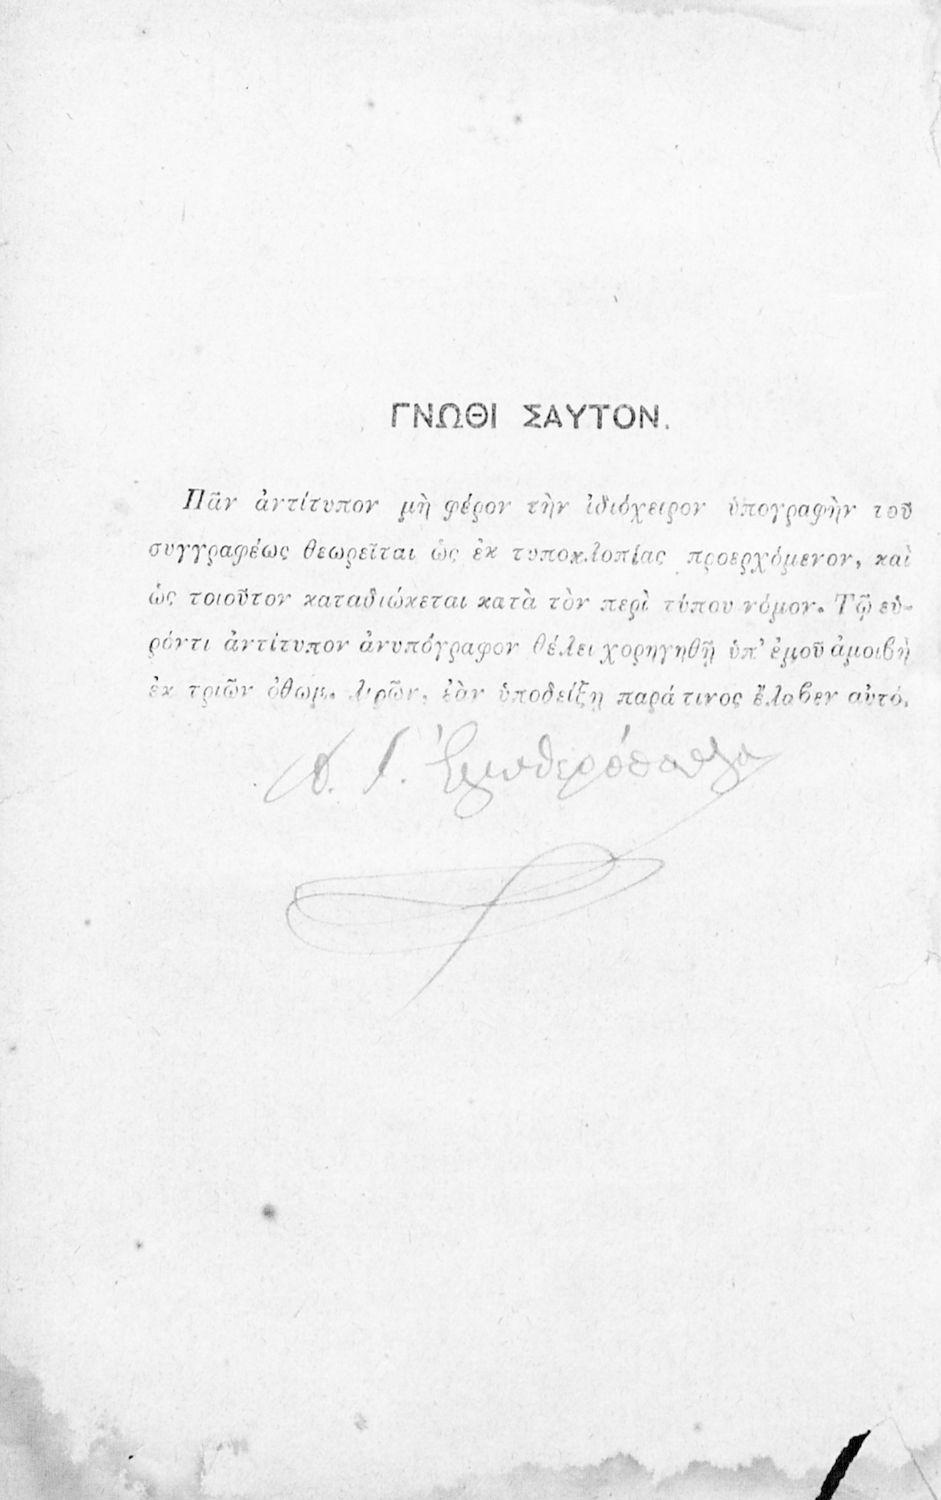 ΓΝΩΘΙ ΣΑΥΤΟΝ.
Πᾶν ἀντίτυπον μὴ φέρον τὴν ἰδιόχειρον ὑπογραφὴν τοῦ
συγγραφέως θεωρεῖται ὡς ἐκ τυποκλοπίας προερχόμενον, καὶ
ὡς τοιοῦτον καταδιώκεται κατὰ τὸν περὶ τύπου νόμον. Τῷ εὑ-
ρόντι ἀντίτυπον ἀνυπόγραφον θέλει χορηγηθῆ ὑπ' ἐμοῦ ἀμοιβὴ
ἐκ τριῶν ὀθωμ. λιρῶν, ἐὰν ὑποδείξῃ παρά τινος ἔλαβεν αὐτό.